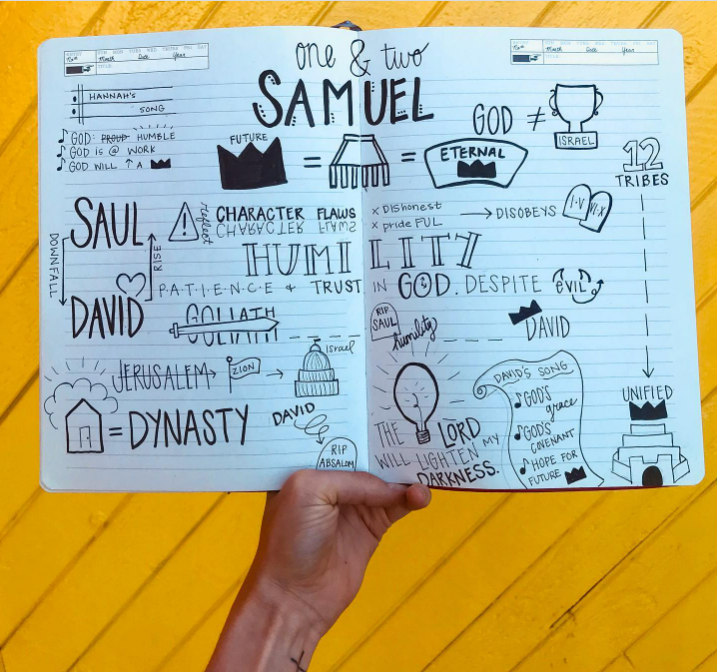 one & two
SAMUEL
HANNAH'S
SONG
GOD: PROUD HUMBLE
GOD IS @ WORK
GOD WILL ↑ A
FUTURE
=
=
ETERNAL
GOD ≠
ISRAEL
12
TRIBES
SAUL
DOWNFALL
RISE
DAVID
reflect
CHARACTER FLAWS
CHARACTER FLAWS
x DISHonest
x prideFUL
→ DISOBEYS
I-V
VI-X
HUMILITY
P-A-T-I-E-N-C-E & TRUST IN GOD. DESPITE EVIL
GOLIATH
RIP
SAUL
humility
DAVID
JERUSALEM→
ZION
→
Israel
= DYNASTY
DAVID
RIP
ABSALOM
THE LORD
WILL LIGHTEN MY
DARKNESS.
DAVID'S SONG
GOD'S
grace
GOD'S
COVENANT
HOPE FOR
FUTURE
UNIFIED